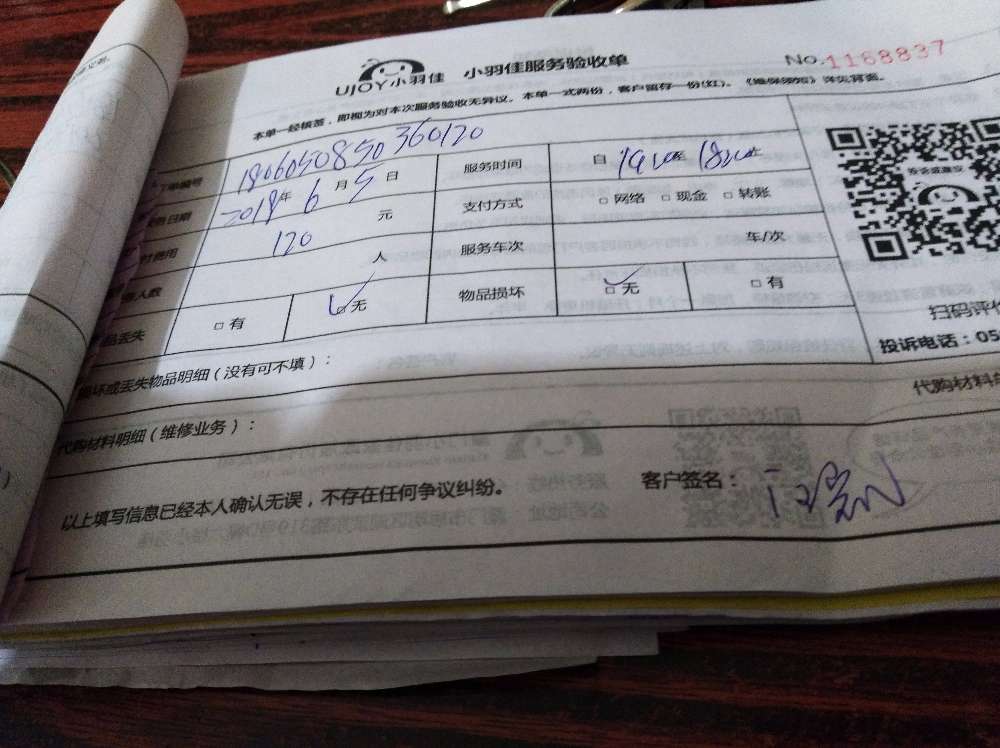 UJOY小羽佳 小羽佳服务验收单 No.1168837
本单一经核签，即视为对本次服务验收无异议。本单一式两份，客户留存一份(红)。《维保须知》详见背面。
单编号 1806050850360120 服务时间 自 至 止
日期 2018年 6月 5日 支付方式 □网络 □现金 □转账
费用 120 元 服务车次 车/次
人数 人 物品损坏 □无 □有
品丢失 □有 □无
扫码评价
投诉电话：05
损坏或丢失物品明细（没有可不填）：
代购材料明细（维修业务）： 代购材料
以上填写信息已经本人确认无误，不存在任何争议纠纷。 客户签名：